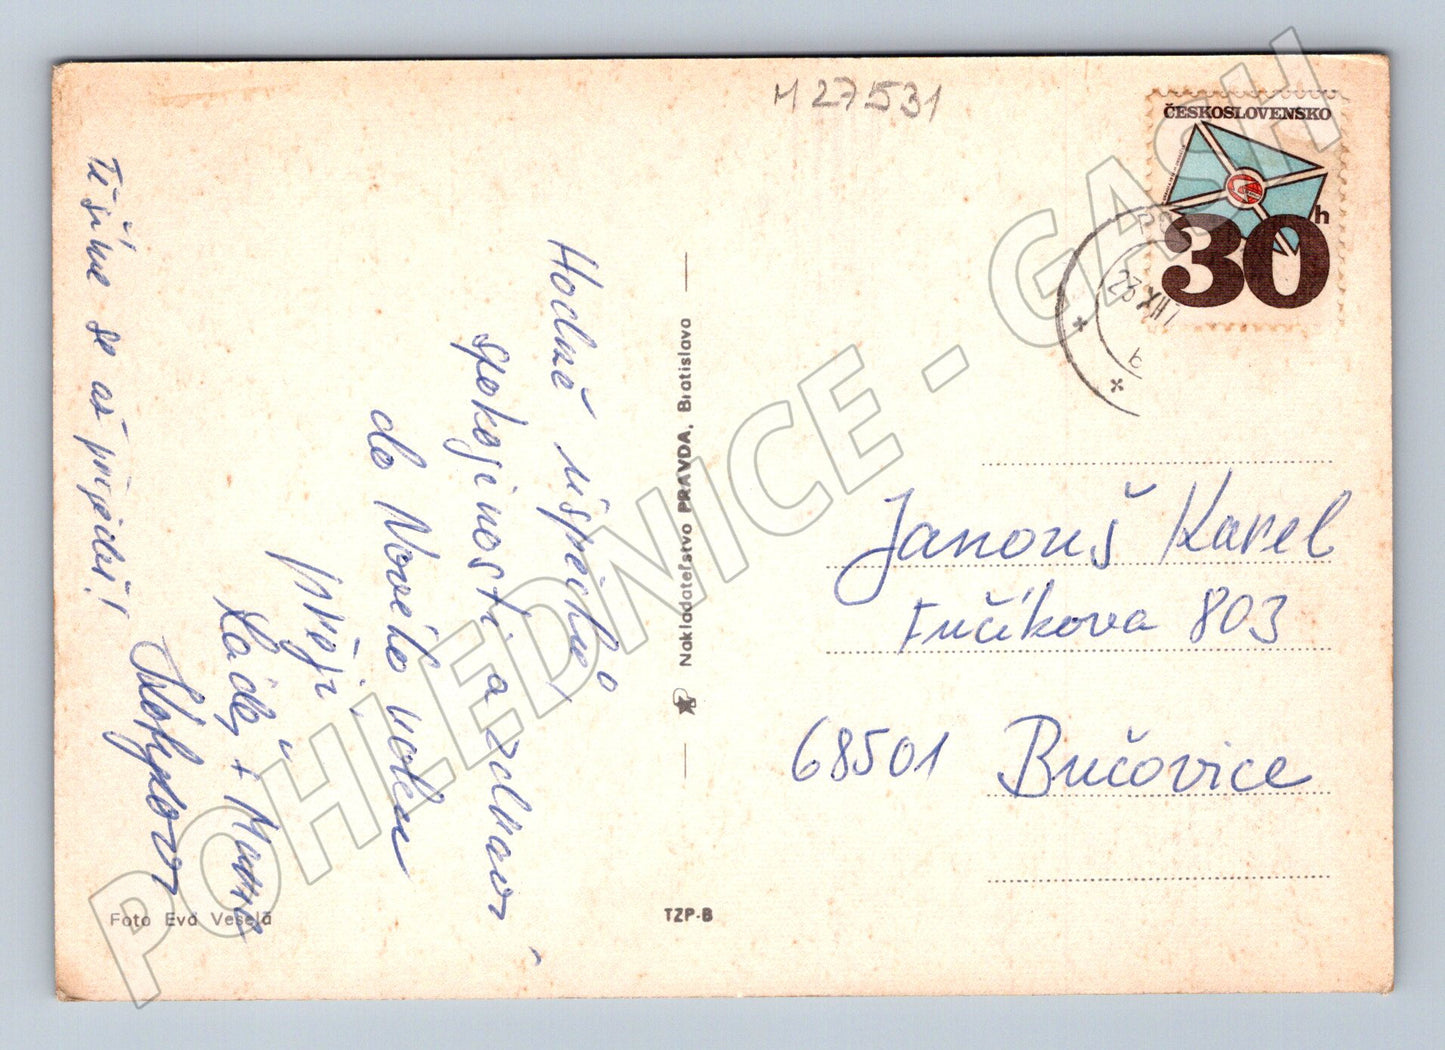 M 27531
ČESKOSLOVENSKO
30h
23.XII
6
Těšíme se až přijedeš!
Hodně úspěchů
spokojenosti a zdraví
do Nového roku
přeje
Láďa + Marie
Janouš Karel
Fučíkova 803
68501 Bučovice
Nakladateľstvo PRAVDA, Bratislava
Foto Eva Veselá
TZP-B
POHLEDNICE - GASH